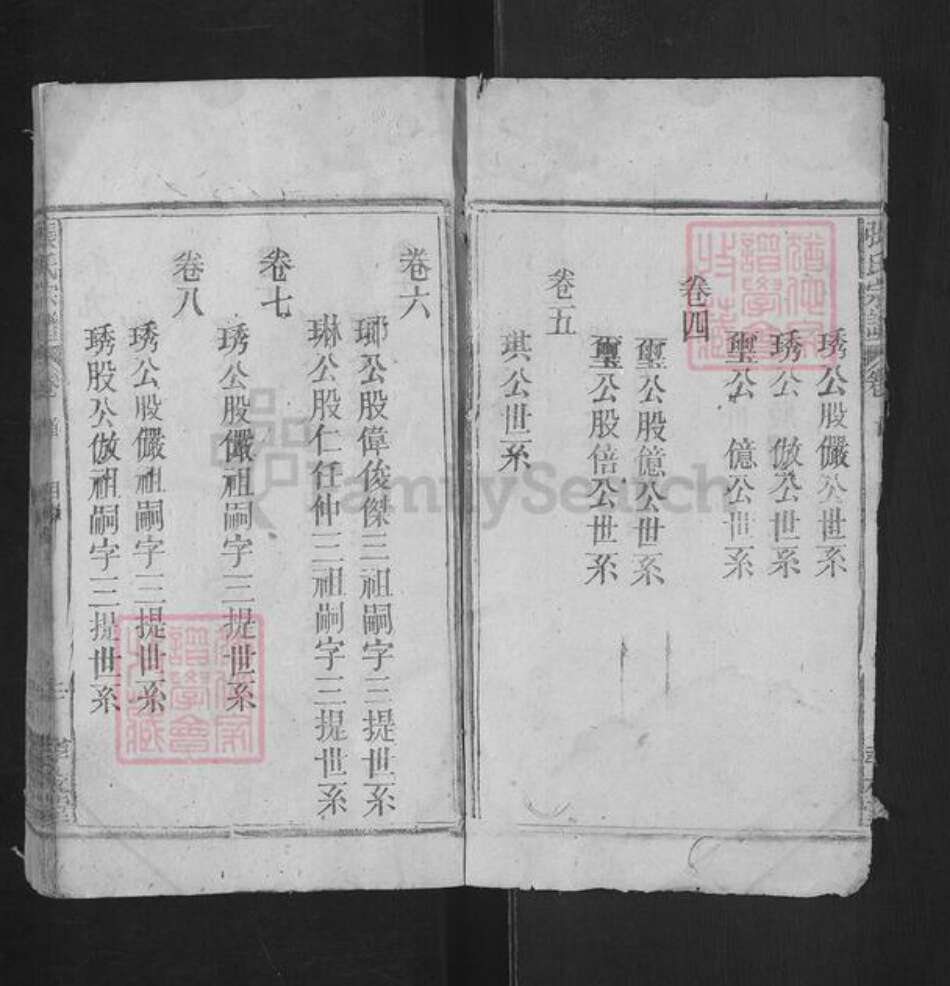 張氏宗譜
琇公股儼公世系
琇公 倣公世系
璽公 億公世系
卷四
璽公股億公世系
璽公股倍公世系
卷五
琪公世系
卷六
琊公股偉俊傑三祖嗣字三提世系
琳公股仁任仲三祖嗣字三提世系
卷七
琇公股儼祖嗣字三提世系
卷八
琇公股儼祖嗣字三提世系
琇股公倣祖嗣字三提世系
張氏宗譜
FamilySearch